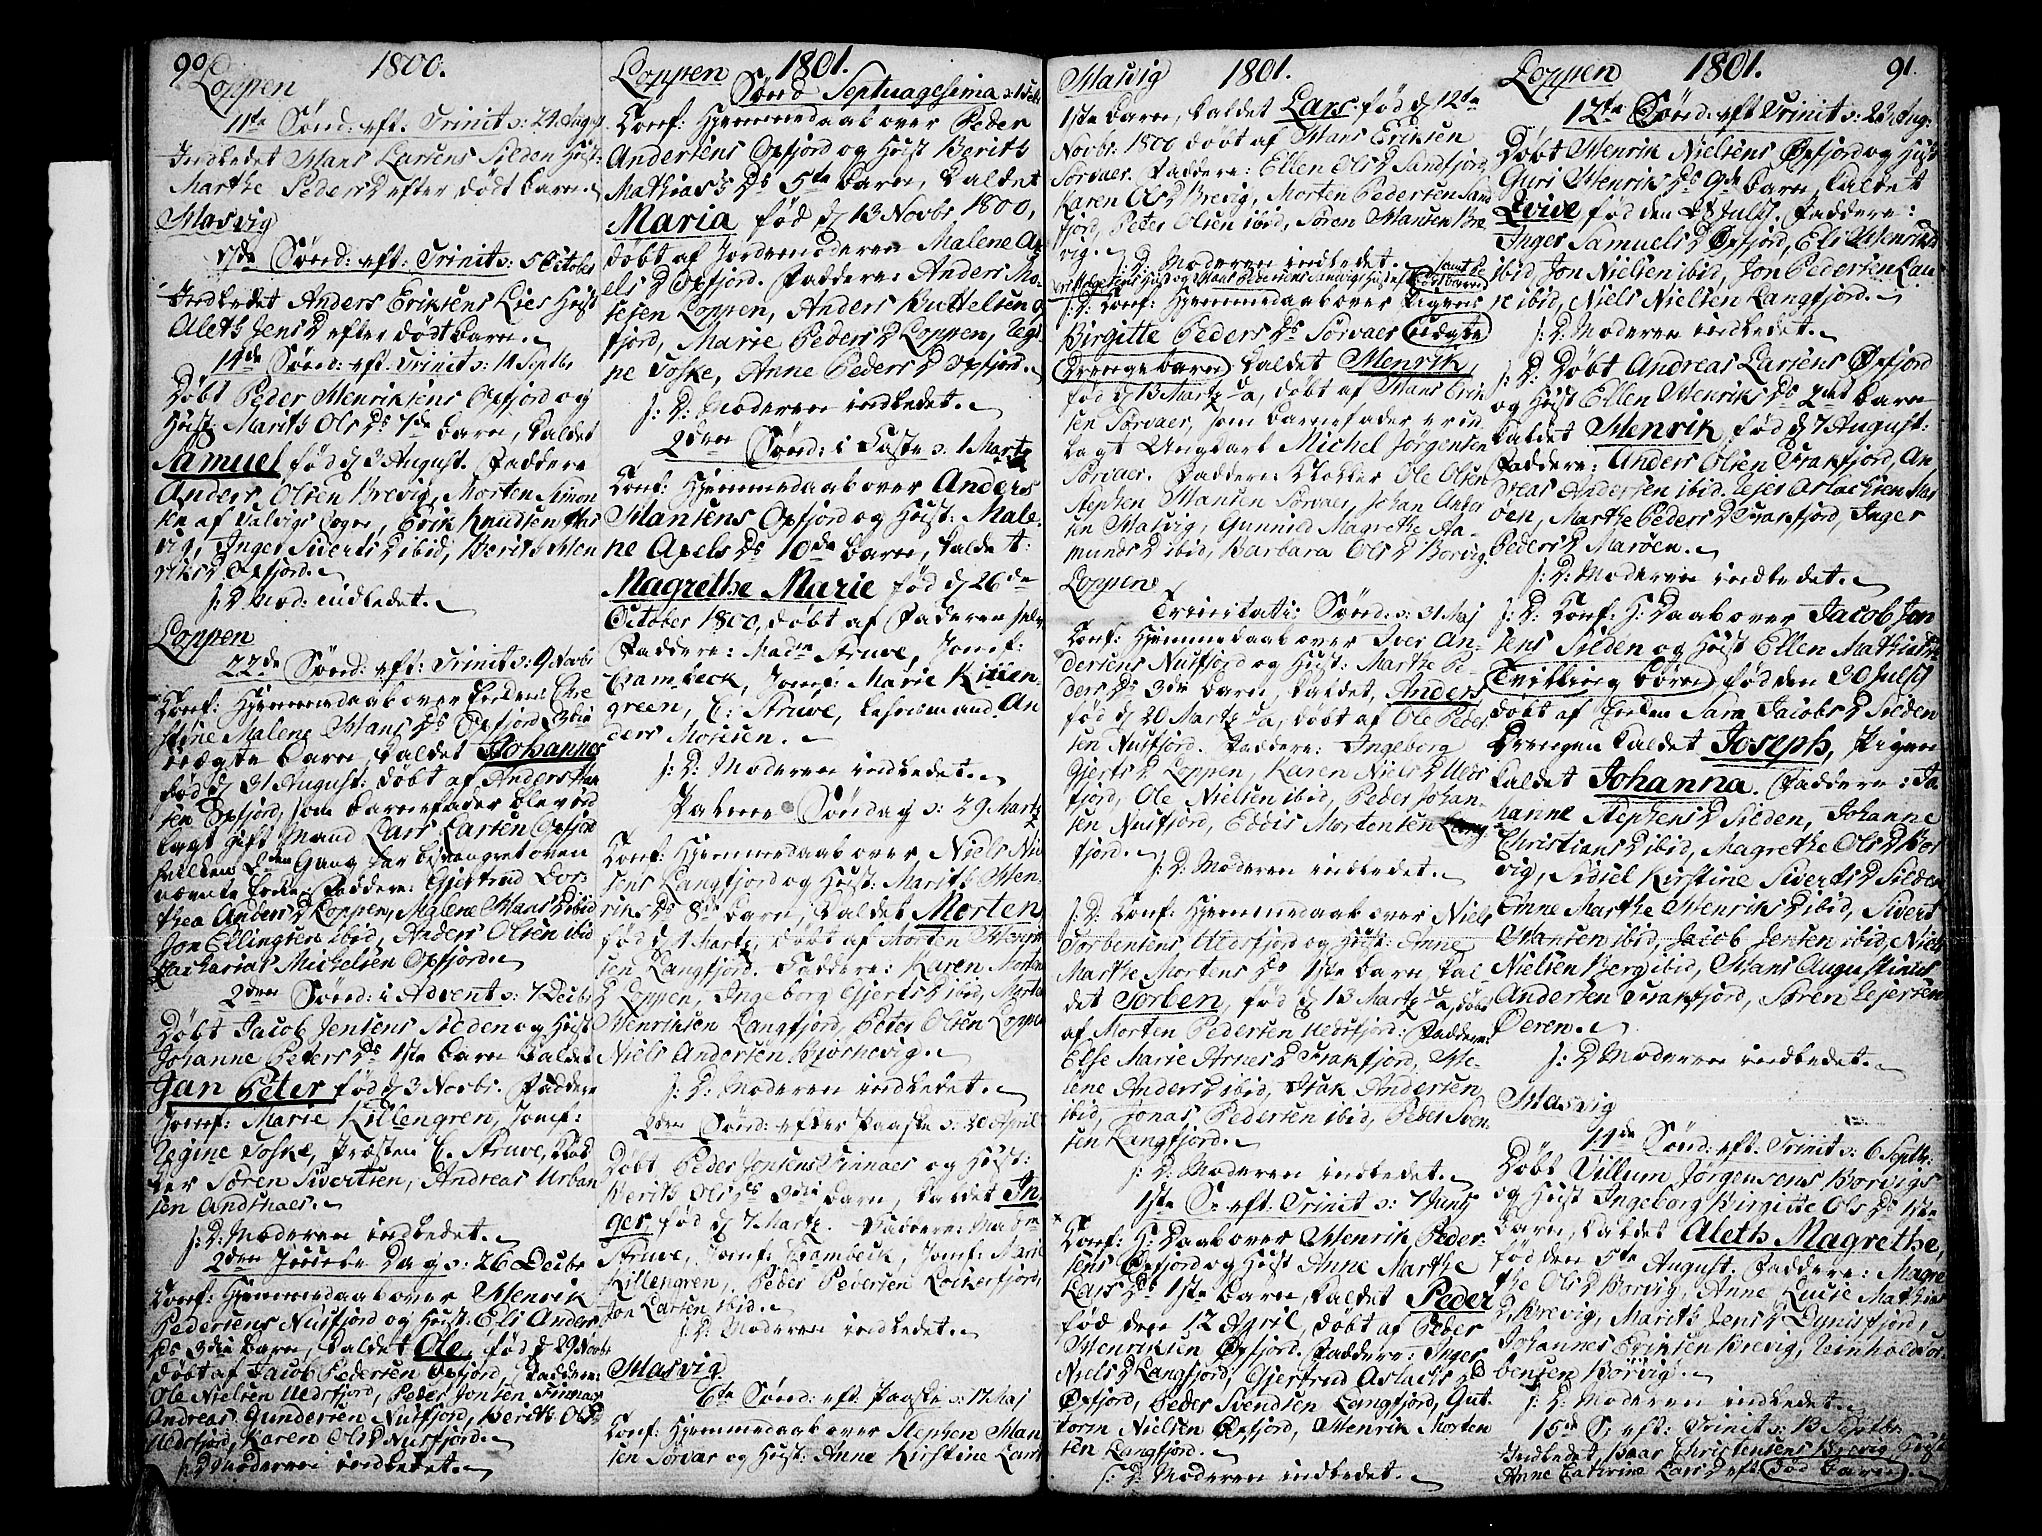 90 1800.
Loppen
11te Sønd: eft. Trinit: d: 24 Aug
Indledet Hans Larsens Silden Hust:
Marthe PedersD efter dødt barn.
Hasvig
17de Sønd: eft: Trinit: d: 5 October
Indledet Anders Eriksens Lies Hust
Aleth JensD efter dødt barn.
14de Sønd: eft: Trinit: d: 14 Septbr
Døbt Peder Henriksens Øxfjord og
Hust. Marith OlsDs 7de barn, kaldet
Samuel fød d 3 August. Faddere
Anders Olsen Brevig, Morten Simon
sen af Talvigs Sogn, Erik Knudsen Has
vig, Inger SivertsD ibid, Berith Hen
riksD Øxfjord.
s: D: Mod: indledet.
Loppen
22de Sønd: eft: Trinit: d: 9 Novbr
Conf: Hjemmedaab over Enken Chri
stine Malene HansDs Øxfjord 3die
uægte barn, kaldet Johannes
fød d 31 August: døbt af Anders Han
sen Øxfjord, som barnefader blev ud
lagt gift Mand Lars Larsen Øxfjord
hvilken 2den Gang har besvangret oven
nævnte Enke. Faddere: Gjertrud Dor
thea AndersD Loppen, Malene HansD ibid
Jon Ellingsen ibid, Anders Olsen ibid
Zacharias Michelsen Øxfjord.
2den Sønd: i Advent d: 7 Decbr
Døbt Jacob Jensens Silden og Hust
Johanne PedersDs 1ste barn kaldet
Jan Peter fød d 3 Novbr. Faddere
Jomf: Marie Killengren, Jomf:
Regine Foske, Præsten C. Struve, Klok
ker Søren Sivertsen, Andreas Urban
sen Andsnæs.
s: D: Moderen indledet.
2den Juuledag d: 26 Decbr
Conf: Hjemmedaab over Henrik
Pedersens Nusfjord og Hust: Eli Anders
Ds 3die barn, kaldet Ole, fød d 29 Novbr
døbt af Jacob Pedersen Øxfjord, Faddere:
Ole Nielsen Uedsfjord, Peder Jonsen Finnæs
Andreas Gundersen Nusfjord, Berith OlsD
Uedsfjord, Karen OlsD Nusfjord.
s: D Moderen indledet.
Loppen 1801.
Sønd Septuagesima d: 1 Febr
Conf: Hjemmedaab over Peder
Andersens Øxfjord og Hust Berith
MathiasDs 5te barn, kaldet
Maria fød d 13 Novbr. 1800,
døbt af Jordemoderen Malene Ax
elsD Øxfjord. Faddere: Anders Mo
sesen Loppen, Anders Buttelsen
fjord, Marie PedersD Loppen, Regi
ne Foske, Anne PedersD Øxfjord.
s: D: Moderen indledet.
2den Sønd: i Faste d. 1 Martz
Conf: Hjemmedaab over Anders
Hansens Øxfjord og Hust. Male
ne AxelsDs 10de barn, kaldet:
Magrethe Marie fød d 26de
October 1800, døbt af Faderen selv
Faddere: Madm Struve, Jomf:
Crambeck, Jomf: Marie Killen
green, C: Struve, Lehnsmand An
ders Mosesen.
s: D: Moderen indledet.
Palme Søndag d: 29 Martz
Conf: Hjemmedaab over Niels Ni
sens Langfjord og Hust: Marith Hen
riksDs 8de barn, kaldet Morten
fød d 1 Martz, døbt af Morten Henrik
sen Langfjord. Faddere: Karen Morten
D Loppen, Ingeborg GjertsD ibid, Morten
Henriksen Langfjord, Peter Olsen Loppen
Niels Andersen Bjørnevig.
s: D: Moderen indledet.
2den Sønd: efter Paaske d: 20 April
Døbt Peder Jensens Finnæs og Hust:
Berith OlsDs 3die barn, kaldet In
ger, fød d 7 Martz. Faddere: Madm
Struve, Jomf: Crambeck, Jomf: Marie
Killengren, Peder Pedersen Lockerfjord
Jon Larsen ibid.
s: D: Moderen indledet.
Hasvig
6te Sønd: eft. Paaske d: 17 Maj
Conf: Hjemmedaab over Stephen Han
sen Sørvær og Hust: Anne Kirstine Lars
Hasvig 1801.
1ste barn, kaldet Lars fød d 12te
Novbr. 1800 døbt af Hans Eriksen
Sørvaer. Faddere: Ellen OlsD Sandfjord
Karen OlsD Brevig, Morten Pedersen Sand
fjord, Peter Olsen ibid, Søren Hansen Bre
vig. s: D Moderen indledet.
s: D: Conf: Hjemmedaab over Pigen
Birgitte PedersDs Sørvaer uægte
Drengebarn kaldet Henrik,
fød d 13 Martz d: a, døbt af Hans Erik
sen Sørvaer, som barnefader er ud
lagt Ungkarl Michel Jørgensen
Sørvaer. Faddere Klokker Ole Olsen
Stephen Hansen Sørvaer, Johan Ander
sen Hasvig, Gunnild Magrethe Aa
mundsD ibid, Barbara OlsD Borvig.
Loppen
Trinitatis Sønd: d: 31 Maj
Conf: Hjemmedaab over Iver An
dersens Nusfjord og Hust: Marthe Pe
dersDs 3die barn, kaldet, Anders
fød d 20 Martz d: a, døbt af Ole Peder
sen Nusfjord. Faddere: Ingeborg
GjertsD Loppen, Karen NielsD Ueds
fjord, Ole Nielsen ibid, Peder Johan
sen Nusfjord, Eddis Mortensen Lang
fjord. s: D: Moderen indledet.
s: D: Conf: Hjemmedaab over Niels
Torbensens Uedsfjord og Hust: Anne
Marthe MortensDs 1ste barn kal
det Torben, fød d 13 Martz d: a, døbt
af Morten Pedersen Uedsfjord: Faddere:
Else Marie ArnesD Frakfjord, He
lene AndersD ibid, Isak Andersen
ibid, Jonas Pedersen ibid, Peder Sven
sen Langfjord.
s: D: Moderen indledet.
1ste S: eft. Trinit d: 7 Juny
Conf: H: Daab over Henrik Peder
sens Øxfjord og Hust Anne Marthe
LarsDs 1ste barn, kaldet Peder
fød den 12 April, døbt af Peder
Henriksen Øxfjord. Faddere: Inger
NielsD Langfjord, Gjertrud AslachsD
Øxfjord, Peder Svendsen Langfjord, Gut
torm Nielsen Øxfjord, Henrik Morten
sen Langfjord.
s: D: Moderen indledet.
Loppen 1801. 91.
12te Sønd: eft Trinit d: 23 Aug:
Døbt Henrik Nielsens Øxfjord og Hust
Guri HenriksDs 9de barn, kaldet
Lvive, fød den 28 July. Faddere:
Inger SamuelsD Øxfjord, Eli HenriksD
ibid, Jon Nielsen ibid, Jon Pedersen Lau
ne ibid, Niels Nielsen Langfjord.
s: D: Moderen indledet.
s: D: Døbt Andreas Larsens Øxfjord
og Hust Ellen HenriksDs 2det barn
kaldet Henrik, fød d 7 August:
Faddere: Anders Olsen Frakfjord, An
dreas Andersen ibid, Lejer Aslachsen Mar
øen, Marthe PedersD Frakfjord, Inger
PedersD Marøen.
s: D: Moderen indledet.
s: D: Conf: H: Daab over Jacob Jon
sens Silden og Hust Ellen MathiasDs
Tvilling børn, fød den 30 July
døbt af Enken Sara JacobsD Silden
Drengen kaldet Joseph, Pigen
kaldet Johanna. Faddere: Jo
hanne StephensD Silden, Johanne
ChristiansD ibid, Magrethe OlsD Bor
vig, Sidsel Kirstine SivertsD Silden
Anne Marthe HenriksD ibid, Sivert
Hansen ibid, Jacob Jensen ibid, Niels
Nielsen Berg ibid, Hans Augustinus
Andersen Frakfjord, Søren Lejersen
Øeren.
s: D Moderen indledet.
Hasvig
14de Sønd: eft. Trinit d: 6 Septbr:
Døbt Villum Jørgensens Borvigs
og Hust Ingeborg Birgitte OlsDs 1ste
barn, kaldet Aleth Magrethe,
fød den 5te August. Faddere: Magre
the OlsD Børvig, Anne Luise Mathias
D Brevig, Marith JensD Dynisfjord,
Johannes Eriksen Brevig, Reinhold Tor
bensen Børvig.
s: D: Moderen indledet.
15de S: eft: Trinit d: 13 Septbr
Indledet Paar Christensens Brevig Hust
Anne Cathrine LarsD eft død barn.